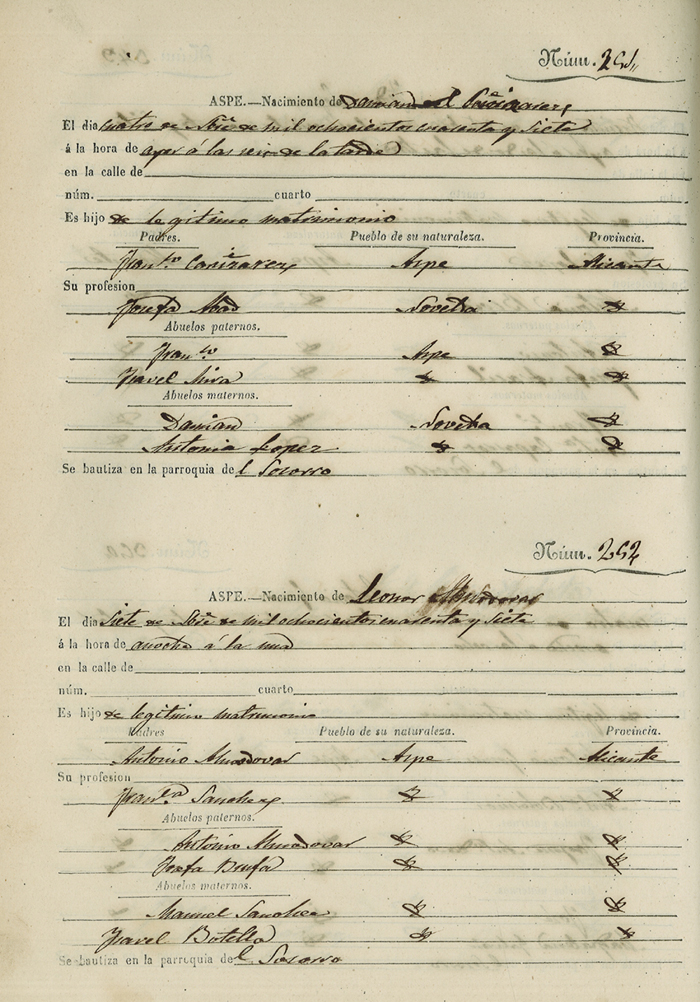 Núm. 251,,
ASPE.—Nacimiento de Damian Cañizares
El dia cuatro de Sbre de mil ochocientos cuarenta y siete
á la hora de ayer á las seis de la tarde
en la calle de
núm. cuarto
Es hijo de legitimo matrimonio
Padres. Pueblo de su naturaleza. Provincia.
Franco Cañizares Aspe Alicante
Su profesion
Josefa Abad Novelda
Abuelos paternos.
Franco Aspe
Ysavel Mira
Abuelos maternos.
Damian Novelda
Antonia Lopez
Se bautiza en la parroquia del Socorro
Núm. 252
ASPE.—Nacimiento de Leonor Almodovar
El dia Siete de Sbre de mil ochocientos cuarenta y siete
á la hora de anoche á la una
en la calle de
núm. cuarto
Es hijo de legitimo matrimonio
Padres Pueblo de su naturaleza. Provincia.
Antonio Almodovar Aspe Alicante
Su profesion
Franca Sanchez
Abuelos paternos.
Antonio Almodovar
Josefa Brufa
Abuelos maternos.
Manuel Sanchez
Ysavel Botella
Se bautiza en la parroquia del Socorro